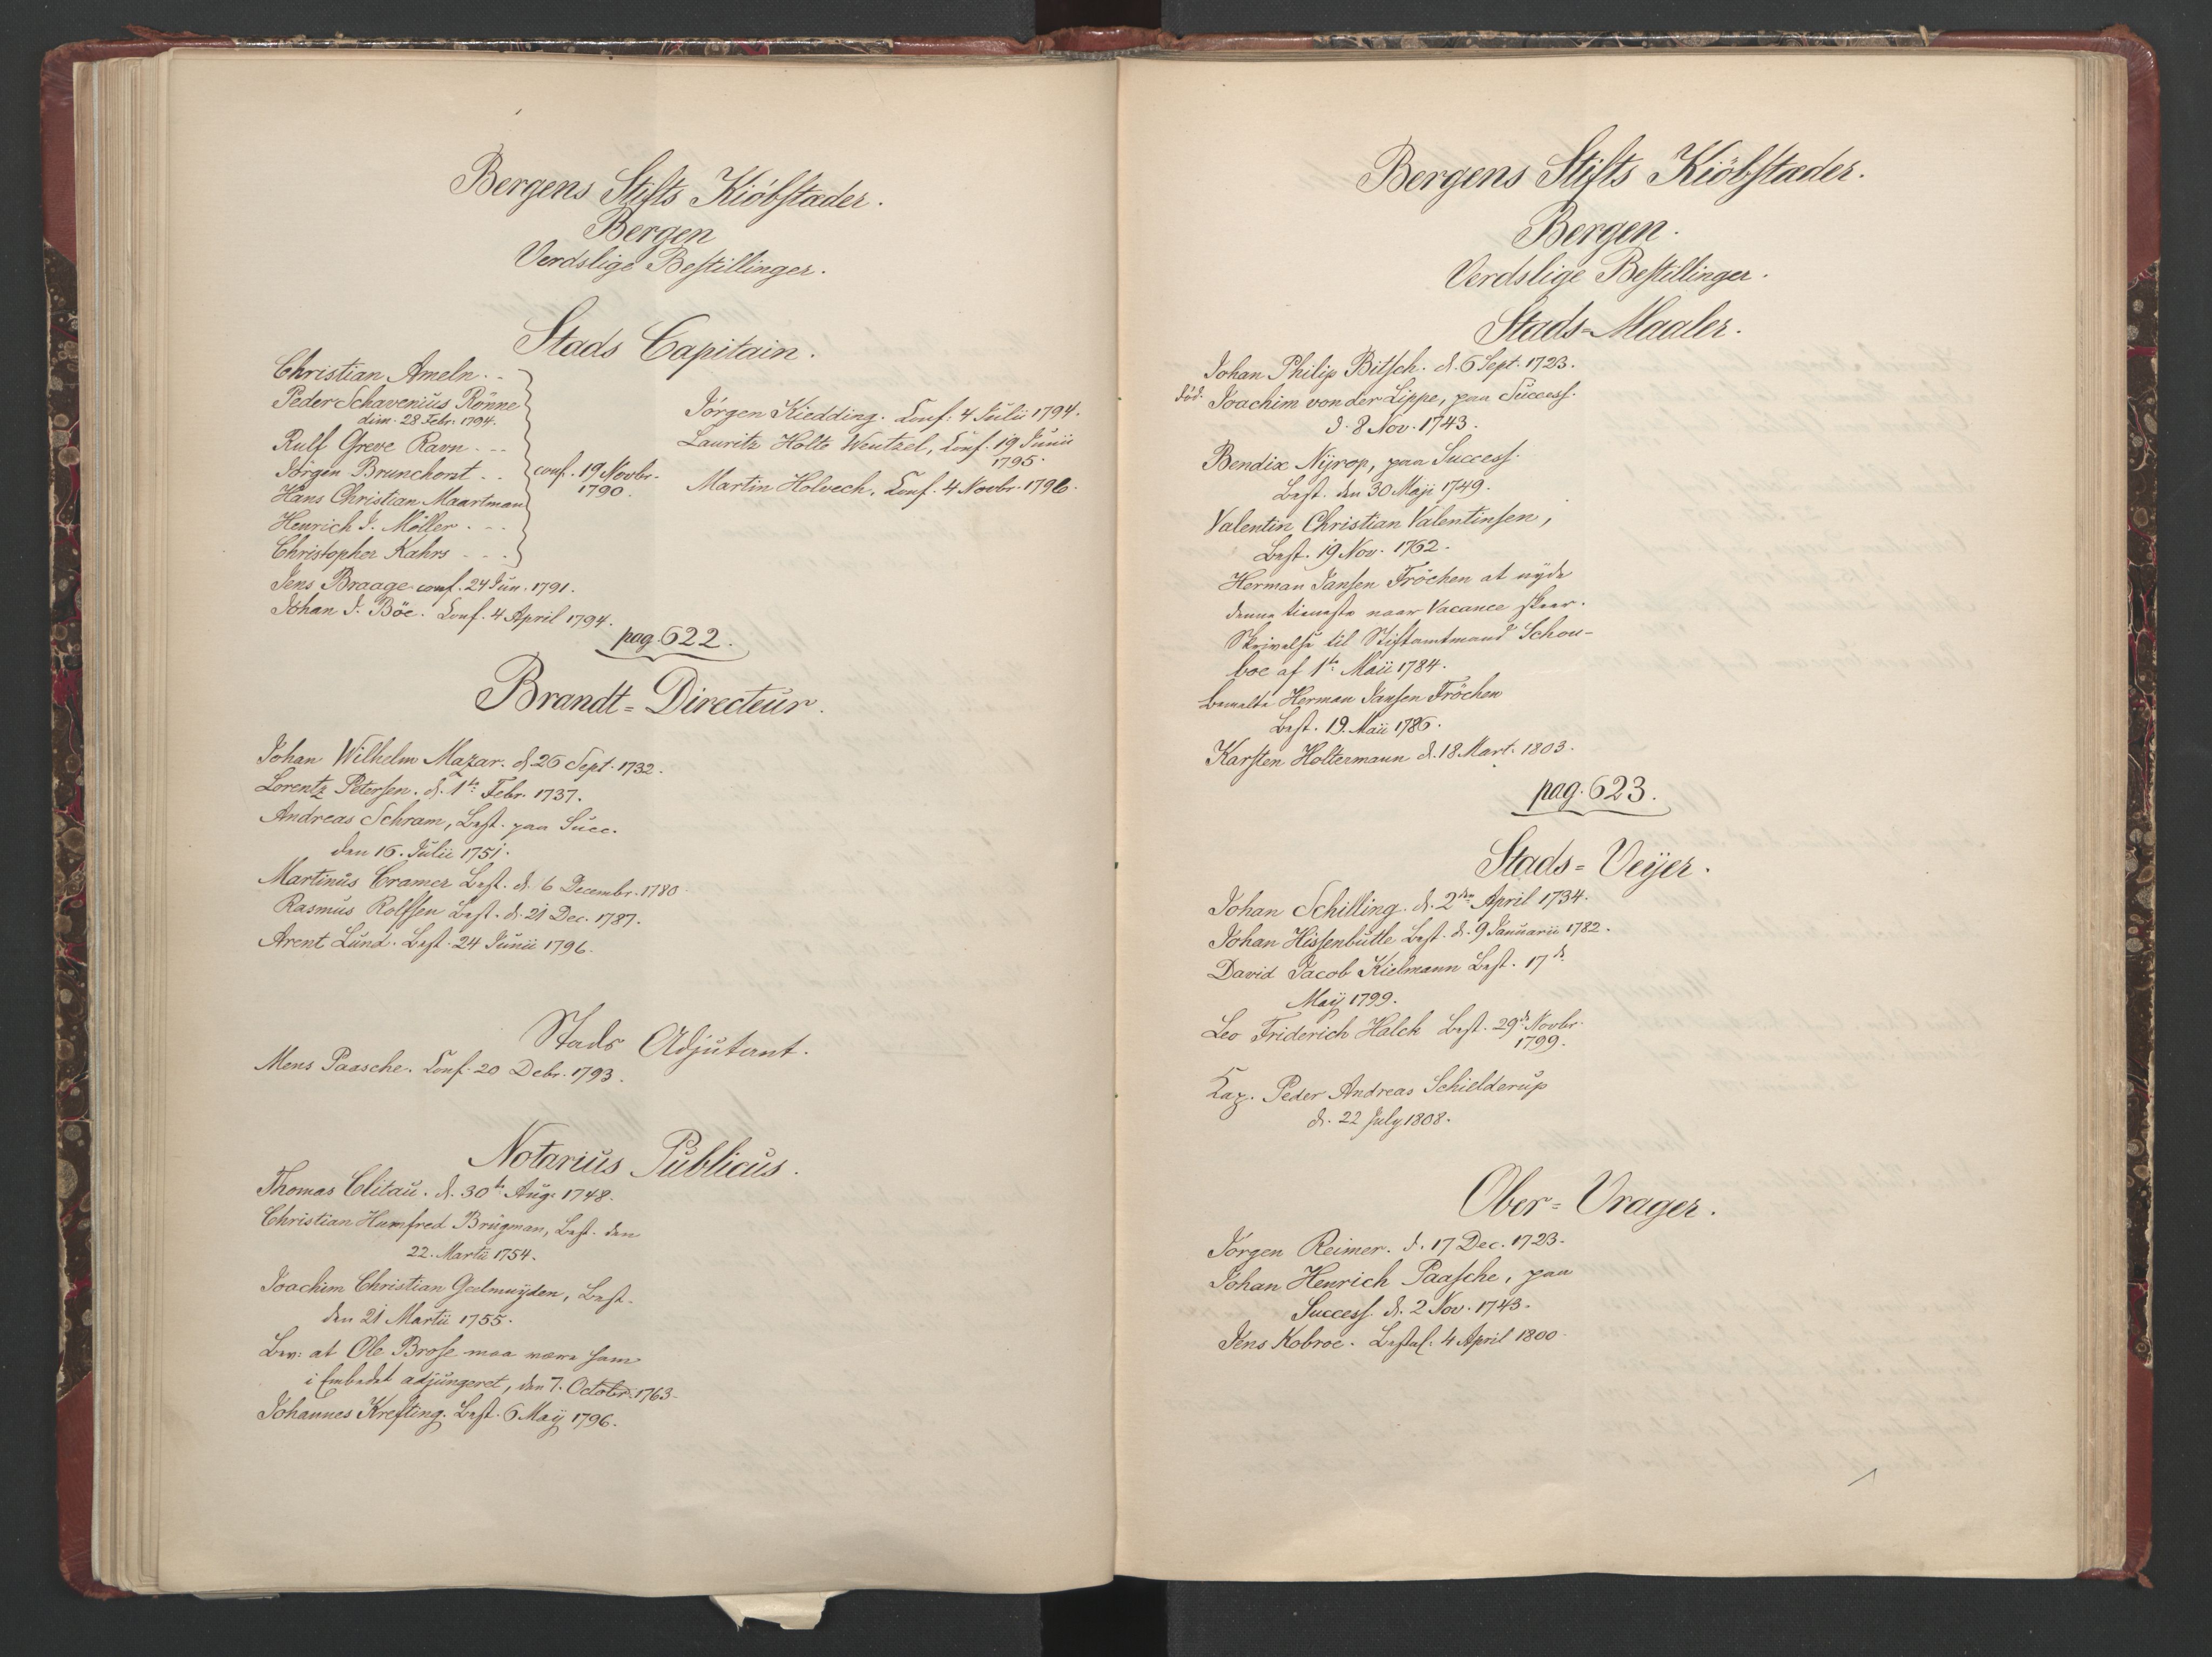 Bergens Stifts Kiöbstæder.
Bergen
Verdslige Bestillinger.
Stads Capitain.
Christian Ameln. -
Peder Schavenius Rönne
dim. 28 Febr. 1794.
Rulf Greve Ravn. - -
Jörgen Brunchorst . .
Hans Christian Maartman
Henrich J. Möller. - -
Christopher Kahrs - - .
conf. 19 Novbr.
1790.
Jens Braage conf. 24 Jun. 1791.
Johan J. Böe. Conf. 4 April 1794.
Jörgen Kiedding. Conf: 4 Julii 1794.
Lauritz Holte Wentzel, Conf. 19 Junii
1795.
Martin Holvech, Conf. 4 Novbr. 1796.
pag. 622.
Brandt=Directeur.
Johan Wilhelm Mazar. d. 26 Sept. 1732.
Lorentz Petersen. d. 1te Febr. 1737.
Andreas Schram, Best. paa Succ.
den 16. Julii 1751.
Martinus Cramer Best. d. 6 Decembr. 1780.
Rasmus Rolfsen Best. d. 21 Dec. 1787.
Arent Lund. Best. 24 Junii 1796.
Stads Adjutant.
Mens Paasche. Conf. 20 Debr. 1793.
Notarius Publicus.
Thomas Clitau. d. 30te Aug. 1748.
Christian Humfred Brügman, Best. den
22. Martii 1754.
Joachim Christian Geelmuÿden, Best.
den 21 Martii 1755.
Bev: at Ole Brose maa være ham
i Embedet adjungeret, den 7. Octobr. 1763.
Johannes Krefting. Best. 6 Maÿ 1796.
Bergens Stifts Kiöbstæder.
Bergen.
Verdslige Bestillinger.
Stads=Maaler.
Johan Philip Bitsch. d. 6 Sept. 1723.
död. Joachim von der Lippe, paa Success.
d. 8 Nov. 1743.
Bendix Nÿrop, paa Success.
Best. den 30 Maji 1749.
Valentin Christian Valentinsen,
Best. 19 Nov. 1762.
Herman Jansen Fröchen at nyde
denne tieneste naar Vacance skeer.
Skrivelse til Stiftamtmand Schou-
boe af 1te Maii 1784.
bemelte Herman Jansen Fröchen
Best. 19. Maii 1786.
Karsten Holtermann d. 18 Mart. 1803.
pag. 623.
Stads=Veÿer.
Johan Schilling. d. 2den April 1734.
Johan Hissenbutle Best. d. 9 Januarii 1782.
David Jacob Kielmann Best. 17 d.
Maÿ 1799.
Leo Friderich Halck Best. 29 d. Novbr.
1799.
Cap. Peder Andreas Schielderup
d. 22 July 1808.
Ober=Vrager.
Jörgen Reimer. d. 17 Dec. 1723.
Johan Henrich Paasche, paa
Success. d. 2 Nov. 1743.
Jens Kobroe. Bestal. 4 April 1800.